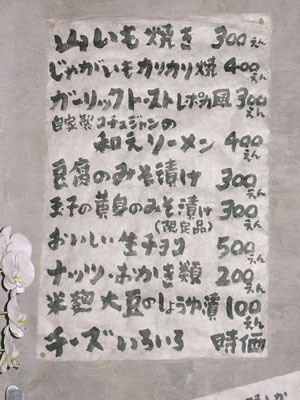 山いも焼き 300えん
じゃがいもカリカリ焼 400えん
ガーリックトーストレポカ風 300えん
自家製コチュジャンの
和えソーメン 400えん
豆腐のみそ漬け 300えん
玉子の黄身のみそ漬け 300えん
(限定品)
おいしい生チョコ 500えん
ナッツ・おかき類 200えん
米麹大豆のしょうゆ漬 100えん
チーズいろいろ 時価